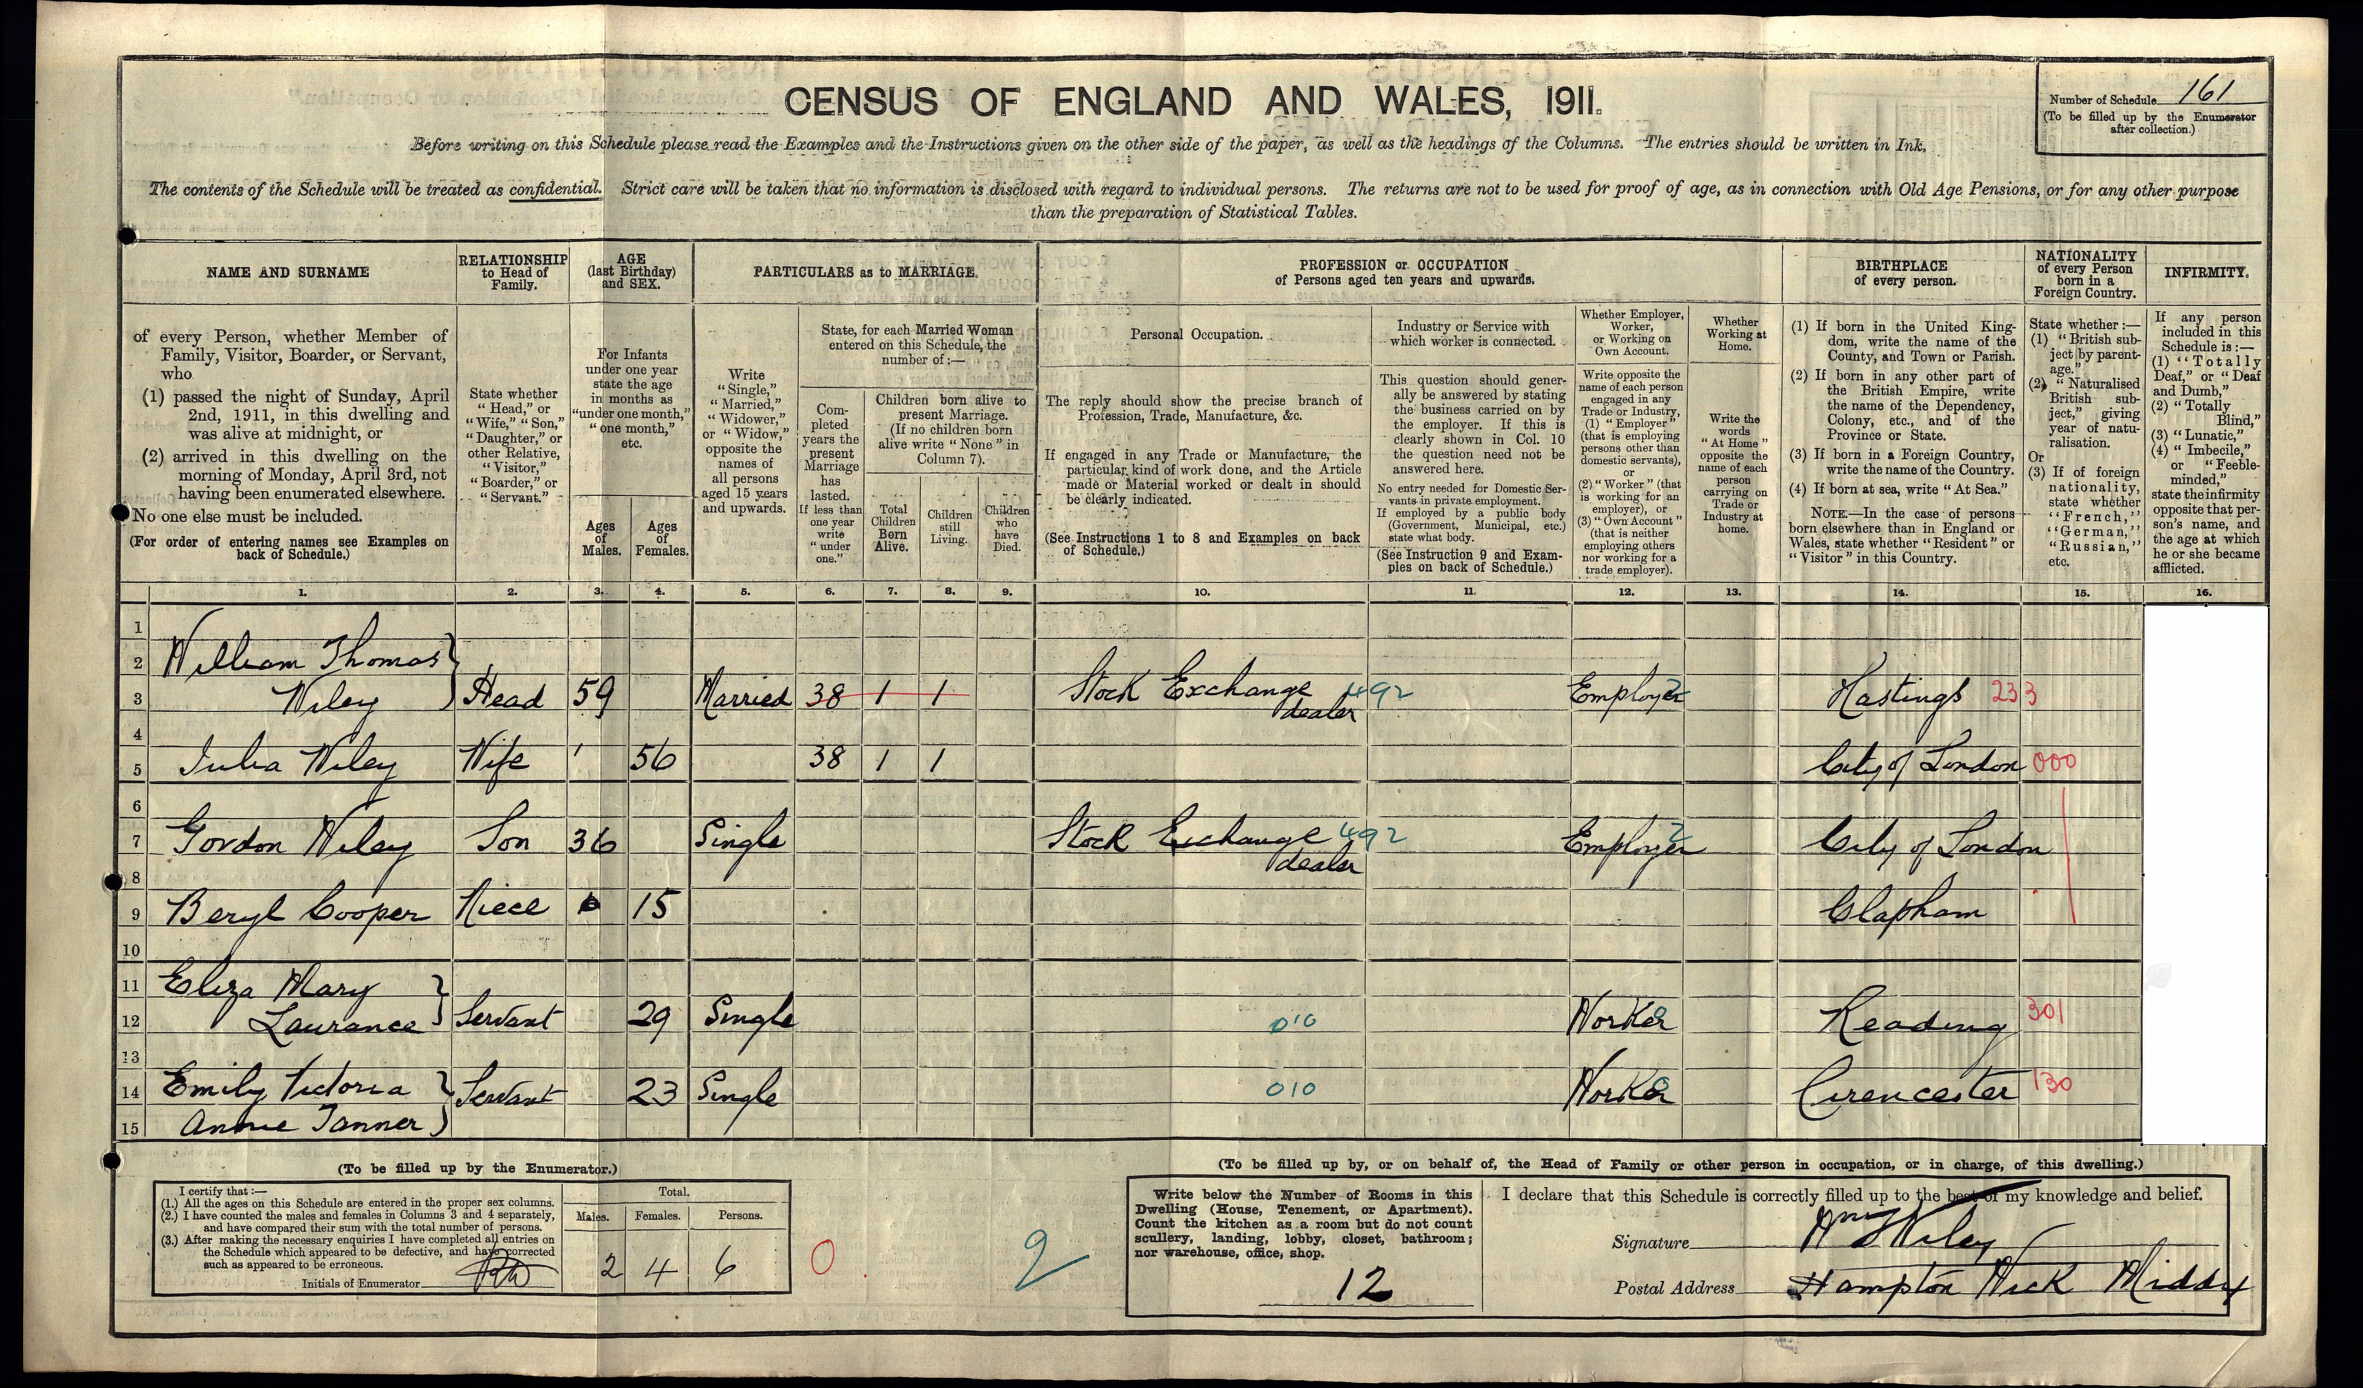 CENSUS OF ENGLAND AND WALES, 1911.
Number of Schedule 161
(To be filled up by the Enumerator
after collection.)
Before writing on this Schedule please read the Examples and the Instructions given on the other side of the paper, as well as the headings of the Columns. The entries should be written in Ink.
The contents of the Schedule will be treated as confidential. Strict care will be taken that no information is disclosed with regard to individual persons. The returns are not to be used for proof of age, as in connection with Old Age Pensions, or for any other purpose
than the preparation of Statistical Tables.
NAME AND SURNAME
of every Person, whether Member of
Family, Visitor, Boarder, or Servant,
who
(1) passed the night of Sunday, April
2nd, 1911, in this dwelling and
was alive at midnight, or
(2) arrived in this dwelling on the
morning of Monday, April 3rd, not
having been enumerated elsewhere.
No one else must be included.
(For order of entering names see Examples on
back of Schedule.)
RELATIONSHIP
to Head of
Family.
State whether
"Head," or
"Wife," "Son,"
"Daughter," or
other Relative,
"Visitor,"
"Boarder," or
"Servant."
AGE
(last Birthday)
and SEX.
For Infants
under one year
state the age
in months as
"under one month,"
"one month,"
etc.
Ages
of
Males.
Ages
of
Females.
PARTICULARS as to MARRIAGE.
Write
"Single,"
"Married,"
"Widower,"
or "Widow,"
opposite the
names of
all persons
aged 15 years
and upwards.
State, for each Married Woman
entered on this Schedule, the
number of:—
Com-
pleted
years the
present
Marriage
has
lasted.
If less than
one year
write
"under
one."
Children born alive to
present Marriage.
(If no children born
alive write "None" in
Column 7).
Total
Children
Born
Alive.
Children
still
Living.
Children
who
have
Died.
PROFESSION or OCCUPATION
of Persons aged ten years and upwards.
Personal Occupation.
The reply should show the precise branch of
Profession, Trade, Manufacture, &c.
If engaged in any Trade or Manufacture, the
particular kind of work done, and the Article
made or Material worked or dealt in should
be clearly indicated.
(See Instructions 1 to 8 and Examples on back
of Schedule.)
Industry or Service with
which worker is connected.
This question should gener-
ally be answered by stating
the business carried on by
the employer. If this is
clearly shown in Col. 10
the question need not be
answered here.
No entry needed for Domestic Ser-
vants in private employment.
If employed by a public body
(Government, Municipal, etc.)
state what body.
(See Instruction 9 and Exam-
ples on back of Schedule.)
Whether Employer,
Worker,
or Working on
Own Account.
Write opposite the
name of each person
engaged in any
Trade or Industry,
(1) "Employer"
(that is employing
persons other than
domestic servants),
or
(2) "Worker" (that
is working for an
employer), or
(3) "Own Account"
(that is neither
employing others
nor working for a
trade employer).
Whether
Working at
Home.
Write the
words
"At Home"
opposite the
name of each
person
carrying on
Trade or
Industry at
home.
BIRTHPLACE
of every person.
(1) If born in the United King-
dom, write the name of the
County, and Town or Parish.
(2) If born in any other part of
the British Empire, write
the name of the Dependency,
Colony, etc., and of the
Province or State.
(3) If born in a Foreign Country,
write the name of the Country.
(4) If born at sea, write "At Sea."
NOTE.—In the case of persons
born elsewhere than in England or
Wales, state whether "Resident" or
"Visitor" in this Country.
NATIONALITY
of every Person
born in a
Foreign Country.
State whether:—
(1) "British sub-
ject by parent-
age."
(2) "Naturalised
British sub-
ject," giving
year of natu-
ralisation.
Or
(3) If of foreign
nationality,
state whether
"French,"
"German,"
"Russian,"
etc.
INFIRMITY.
If any person
included in this
Schedule is:—
(1) "Totally
Deaf," or "Deaf
and Dumb,"
(2) "Totally
Blind,"
(3) "Lunatic,"
(4) "Imbecile,"
or "Feeble-
minded,"
state the infirmity
opposite that per-
son's name, and
the age at which
he or she became
afflicted.
1. 2. 3. 4. 5. 6. 7. 8. 9. 10. 11. 12. 13. 14. 15. 16.
1
2 William Thomas
3 Wiley Head 59 Married 38 1 1 Stock Exchange dealer 492 Employer 2 Hastings 233
4
5 Julia Wiley Wife 56 38 1 1 City of London 000
6
7 Gordon Wiley Son 36 Single Stock Exchange dealer 492 Employer 2 City of London
8
9 Beryl Cooper Niece 15 Clapham
10
11 Eliza Mary
12 Laurance Servant 29 Single 010 Worker 0 Reading 301
13
14 Emily Victoria Servant 23 Single 010 Worker 0 Cirencester 130
15 Annie Tanner
(To be filled up by the Enumerator.)
I certify that:—
(1.) All the ages on this Schedule are entered in the proper sex columns.
(2.) I have counted the males and females in Columns 3 and 4 separately,
and have compared their sum with the total number of persons.
(3.) After making the necessary enquiries I have completed all entries on
the Schedule which appeared to be defective, and have corrected
such as appeared to be erroneous.
Initials of Enumerator
Total.
Males. Females. Persons.
2 4 6
0
2
(To be filled up by, or on behalf of, the Head of Family or other person in occupation, or in charge, of this dwelling.)
Write below the Number of Rooms in this
Dwelling (House, Tenement, or Apartment).
Count the kitchen as a room but do not count
scullery, landing, lobby, closet, bathroom;
nor warehouse, office, shop.
12
I declare that this Schedule is correctly filled up to the best of my knowledge and belief.
Signature Wiley
Postal Address Hampton Wick Middx